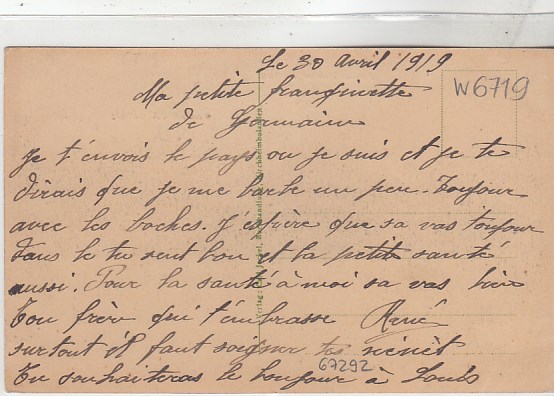 Le 30 Avril 1919
W6719
Ma petite
de Germaine
Je t'envois le pays ou je suis et je te
dirais que je me barbe un peu. Toujour
avec les boches. J'espère que sa vas toujour
dans le tu sent bon et la petite santé
aussi. Pour la santé à moi sa vas bien
Ton frère qui t'embrasse René
surtout il faut soigner tes
67292
Tu souhaiteras le bonjour à Louis